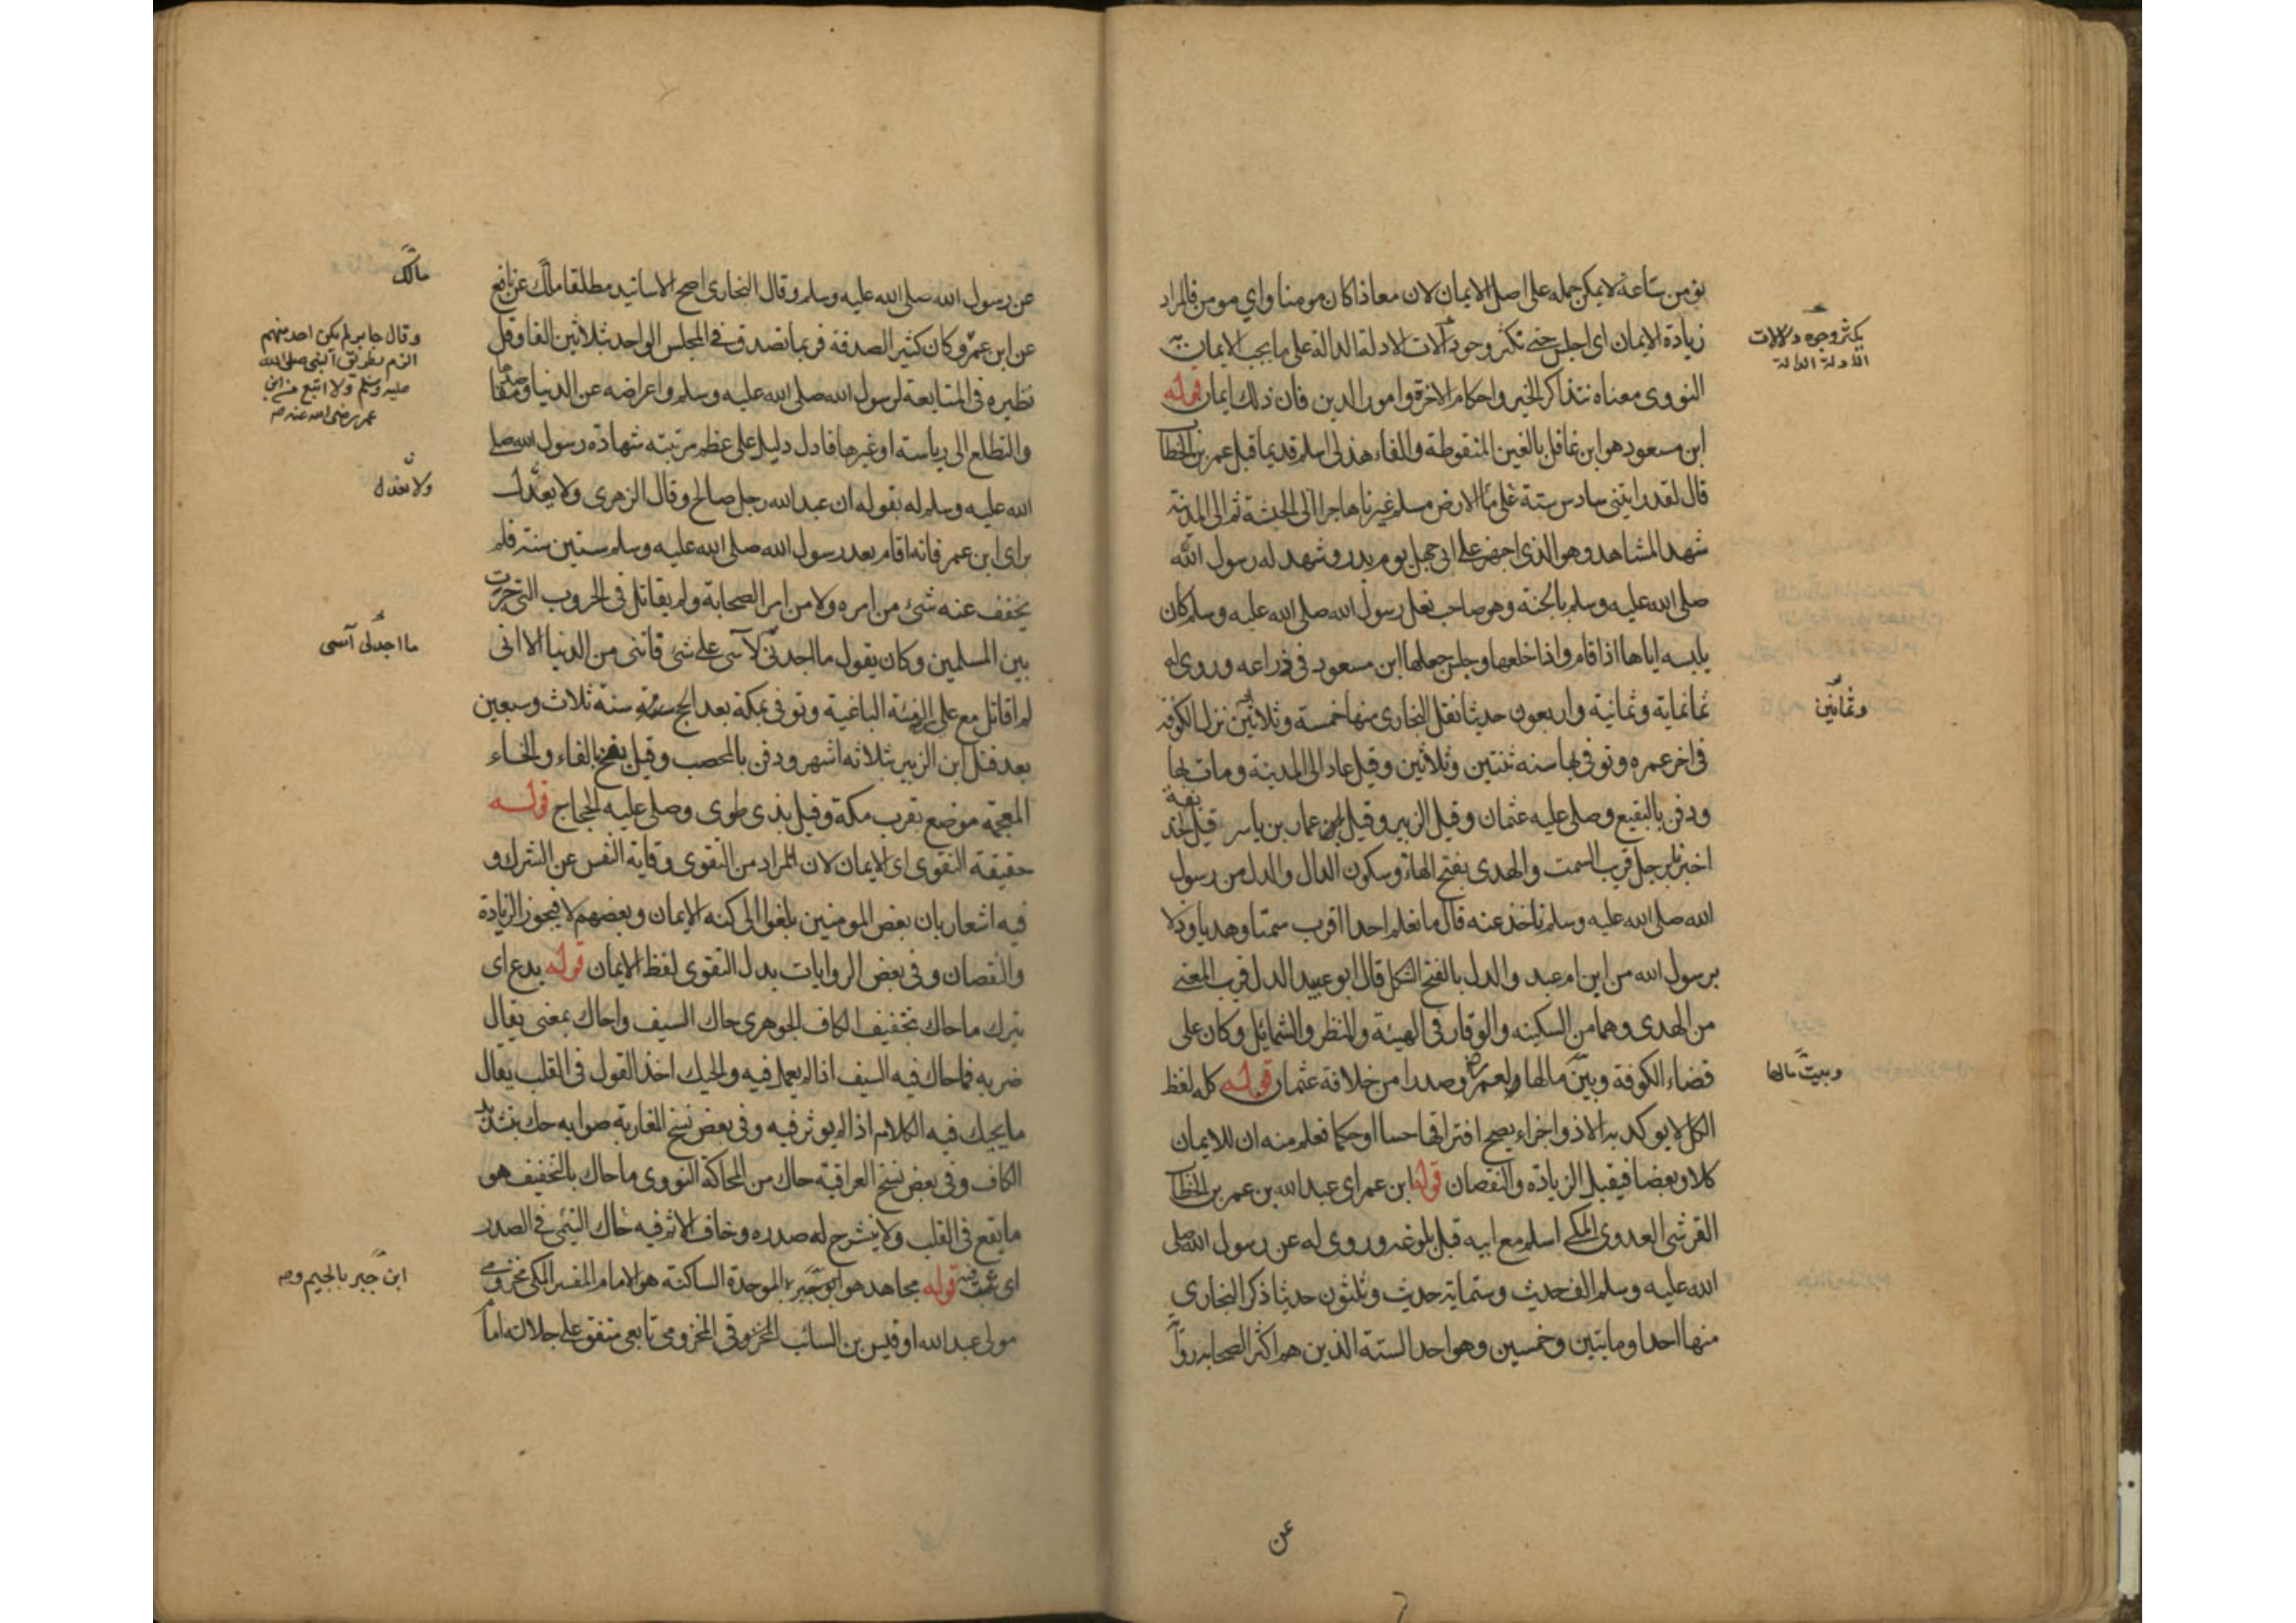 نؤمن ساعة لا يمكن حمله على اصل الايمان لان معاذا كان مومنا واي مومن فالمراد
زيادة الايمان اى اجلس حتى نكثر وجود آلات الادلة الدالة على ما يجب الايمان به
النووى معناه نتذاكر الخير واحكام الاخرة وامور الدين فان ذلك ايمان قوله
ابن مسعود هو ابن غافل بالغين المنقوطة والفاء هذلى اسلم قديما قبل عمر بن الخطاب
قال لقد رايتنى سادس ستة على الارض مسلم غيرنا هاجر الى الحبشة ثم الى المدينة
شهد المشاهد وهو الذى اجهز على ابى جهل يوم بدر وشهد له رسول الله
صلى الله عليه وسلم بالجنة وهو صاحب نعل رسول الله صلى الله عليه وسلم كان
يلبسه اياها اذا قام واذا خلعها وجلس جعلها ابن مسعود فى ذراعه وروى له
ثمانماية وثمانية واربعون حديثا نقل البخارى منها خمسة وثلاثين نزل الكوفة
فى اخر عمره وتوفى بها سنه ثنتين وثلاثين وقيل عاد الى المدينة ومات بها
ودفن بالبقيع وصلى عليه عثمان وقيل الزبير وقيل عمار بن ياسر قيل لحذيفة
اخبرنا برجل قريب السمت والهدى بفتح الهاء وسكون الدال والدل من رسول
الله صلى الله عليه وسلم ناخذ عنه قال ما نعلم احدا اقرب سمتا وهديا ودلا
برسول الله من ابن ام عبد والدل بالفتح الشكل قال ابو عبيد الدل قريب المعنى
من الهدى وهما من السكينه والوقار فى الهيئة والمنظر والشمائل وكان على
قضاء الكوفة وبين مالها لعمر وصدرا من خلافة عثمان قوله كله لفظ
الكل لا يوكد به الا ذو اجزاء يصح افتراقها حسا او حكما فعلم منه ان للايمان
كلا وبعضا فيقبل الزيادة والنقصان قوله ابن عمر اى عبد الله بن عمر بن الخطاب
القرشى العدوى المكى اسلم مع ابيه قبل بلوغه وروى له عن رسول الله صلى
الله عليه وسلم الف حديث وستماية حديث وثلثون حديثا ذكر البخارى
منها احدا ومايتين وخمسين وهو احد الستة الذين هم اكثر الصحابة رواية
يكثر وجوه دلالات
الادلة الدالة
وثمانين
وبيت مالها
عن
عن رسول الله صلى الله عليه وسلم وقال البخارى اصح الاسانيد مطلقا مالك عن نافع
عن ابن عمر وكان كثير الصدقة فربما تصدق فى المجلس الواحد بثلاثين الفا وقل
نظيره فى المتابعة لرسول الله صلى الله عليه وسلم واعراضه عن الدنيا ومقاصدها
والتطلع الى رياسته او غيرها فادل دليل على عظم مرتبته شهادة رسول الله صلى
الله عليه وسلم له بقوله ان عبد الله رجل صالح وقال الزهرى ولا يعدل
براى ابن عمر فانه اقام بعد رسول الله صلى الله عليه وسلم ستين سنة فلم
يخفف عنه شئ من امره ولا من امر الصحابة ولم يقاتل فى الحروب التى جرت
بين المسلمين وكان يقول ما اجدنى لآسى على شئ فاتنى من الدنيا الا انى
لم اقاتل مع على الفئة الباغية وتوفى بمكة بعد الحج سنة ثلاث وسبعين
بعد قتل ابن الزبير بثلاثه اشهر ودفن بالمحصب وقيل بفخ بالفاء والخاء
المعجمة موضع بقرب مكة وقيل بذى طوى وصلى عليه الحجاج قوله
حقيقة التقوى اى الايمان لان المراد من التقوى وقاية النفس عن الشرك و
فيه اشعار بان بعض المومنين بلغوا الى كنه الايمان وبعضهم لا فيجوز الزيادة
والنقصان وفى بعض الروايات بدل التقوى لفظ الايمان قوله يدع اى
يترك ما حاك بتخفيف الكاف الجوهرى حاك السيف واحاك بمعنى يقال
ضربه فما حاك فيه السيف اذا لم يعمل فيه والحيك اخذ القول فى القلب يقال
ما يحيك فيه الكلام اذا لم يوثر فيه وفى بعض نسخ المغاربة صوابه حك بتشديد
الكاف وفى بعض نسخ العراقية حاك من المحاكة النووى ما حاك بالتخفيف هو
ما يقع فى القلب ولا ينشرح له صدره وخاف الاثم فيه حاك الشئ فى الصدر
اى قوله مجاهد هو ابو جبر بالموحدة الساكنة هو الامام المفسر المكى مخزومى
مولى عبد الله او قيس بن السائب المخزومى تابعى متفق على جلالته اما
مالك
وقال جابر لم يكن احد منهم
الزم بطريق النبى صلى الله
عليه وسلم ولا اتبع من ابن
عمر رضى الله عنه صح
ولا نعدل
ما اجدنى آسى
ابن جبر بالجيم و